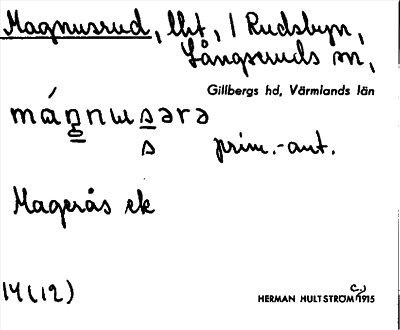 Magnusrud, lht, / Rudsbyn,
Långseruds sn,
Gillbergs hd, Värmlands län
máŋnɯsərə
s prim.-ant.
Magerås ek
14(12)
HERMAN HULTSTRÖM c.) 1915